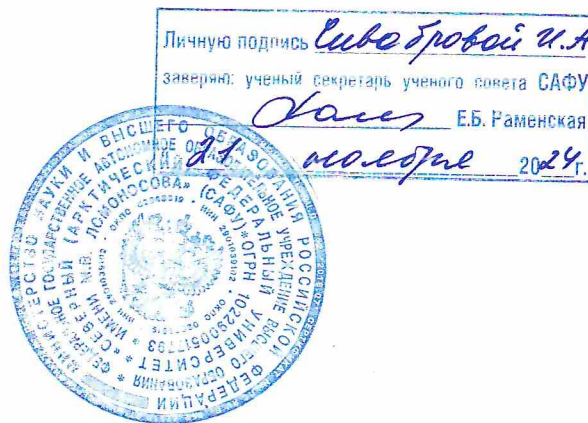 Личную подпись Чивобровой И.А
заверяю: ученый секретарь ученого совета САФУ
Е.Б. Раменская
21 ноября 2024 г.
МИНИСТЕРСТВО НАУКИ И ВЫСШЕГО ОБРАЗОВАНИЯ РОССИЙСКОЙ ФЕДЕРАЦИИ *
ФЕДЕРАЛЬНОЕ ГОСУДАРСТВЕННОЕ АВТОНОМНОЕ ОБРАЗОВАТЕЛЬНОЕ УЧРЕЖДЕНИЕ ВЫСШЕГО ОБРАЗОВАНИЯ *
«СЕВЕРНЫЙ (АРКТИЧЕСКИЙ) ФЕДЕРАЛЬНЫЙ УНИВЕРСИТЕТ *
ИМЕНИ М.В. ЛОМОНОСОВА» (САФУ) * ОГРН